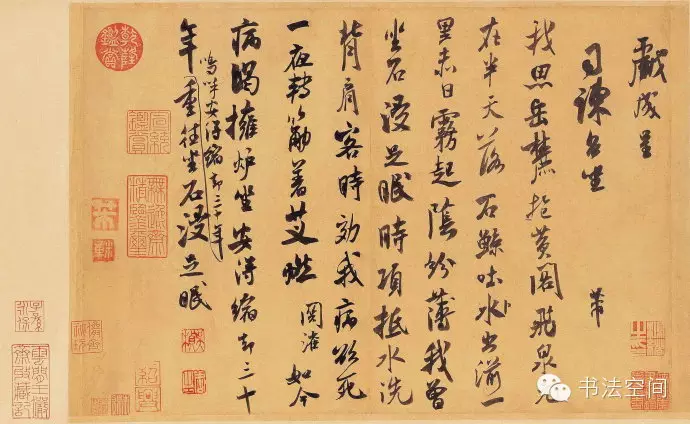 戯成呈
司諫台坐
芾
我思岳麓抱黄閣飛泉元
在半天落石鯨吐水出湔一
里赤日霧起陰紛薄我曾
坐石浸足眠時項抵水洗
背肩客時效我病欲死
一夜轉筋著艾燃關淮如今
病渴擁爐坐安得縮却三十
嗚呼安得縮却三十年
年重往坐石浸足眠
乾隆鑑賞
书法空间